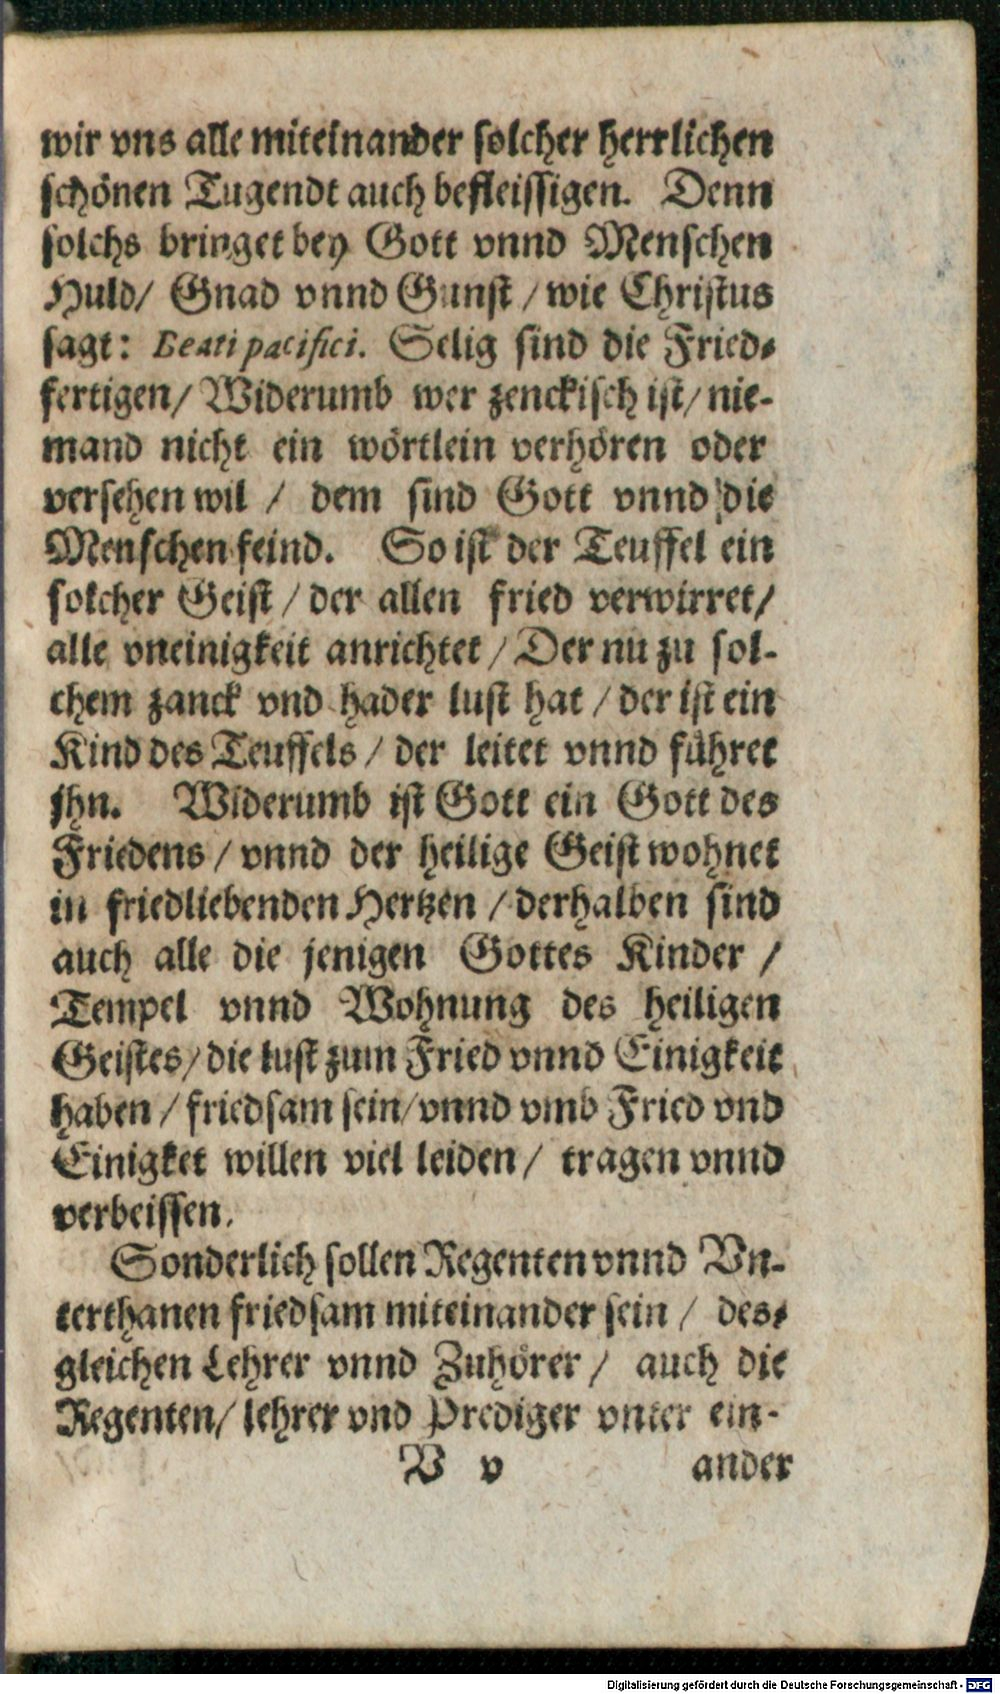 wir vns alle miteinander solcher herrlichen
schönen Tugendt auch befleissigen. Denn
solchs bringet bey Gott vnnd Menschen
Huld/ Gnad vnnd Gunst / wie Christus
sagt: Beati pacifici. Selig sind die Fried-
fertigen/ Widerumb wer zenckisch ist/ nie-
mand nicht ein wörtlein verhören oder
versehen wil / dem sind Gott vnnd die
Menschen feind. So ist der Teuffel ein
solcher Geist / der allen fried verwirret/
alle vneinigkeit anrichtet / Der nu zu sol-
chem zanck vnd hader lust hat / der ist ein
Kind des Teuffels / der leitet vnnd führet
jhn. Widerumb ist Gott ein Gott des
Friedens / vnnd der heilige Geist wohnet
in friedliebenden Hertzen / derhalben sind
auch alle die jenigen Gottes Kinder /
Tempel vnnd Wohnung des heiligen
Geistes/ die lust zum Fried vnnd Einigkeit
haben / friedsam sein/ vnnd vmb Fried vnd
Einigket willen viel leiden / tragen vnnd
verbeissen.
Sonderlich sollen Regenten vnnd Vn-
terthanen friedsam miteinander sein / des-
gleichen Lehrer vnnd Zuhörer / auch die
Regenten/ lehrer vnd Prediger vnter ein-
V v ander
Digitalisierung gefördert durch die Deutsche Forschungsgemeinschaft - DFG